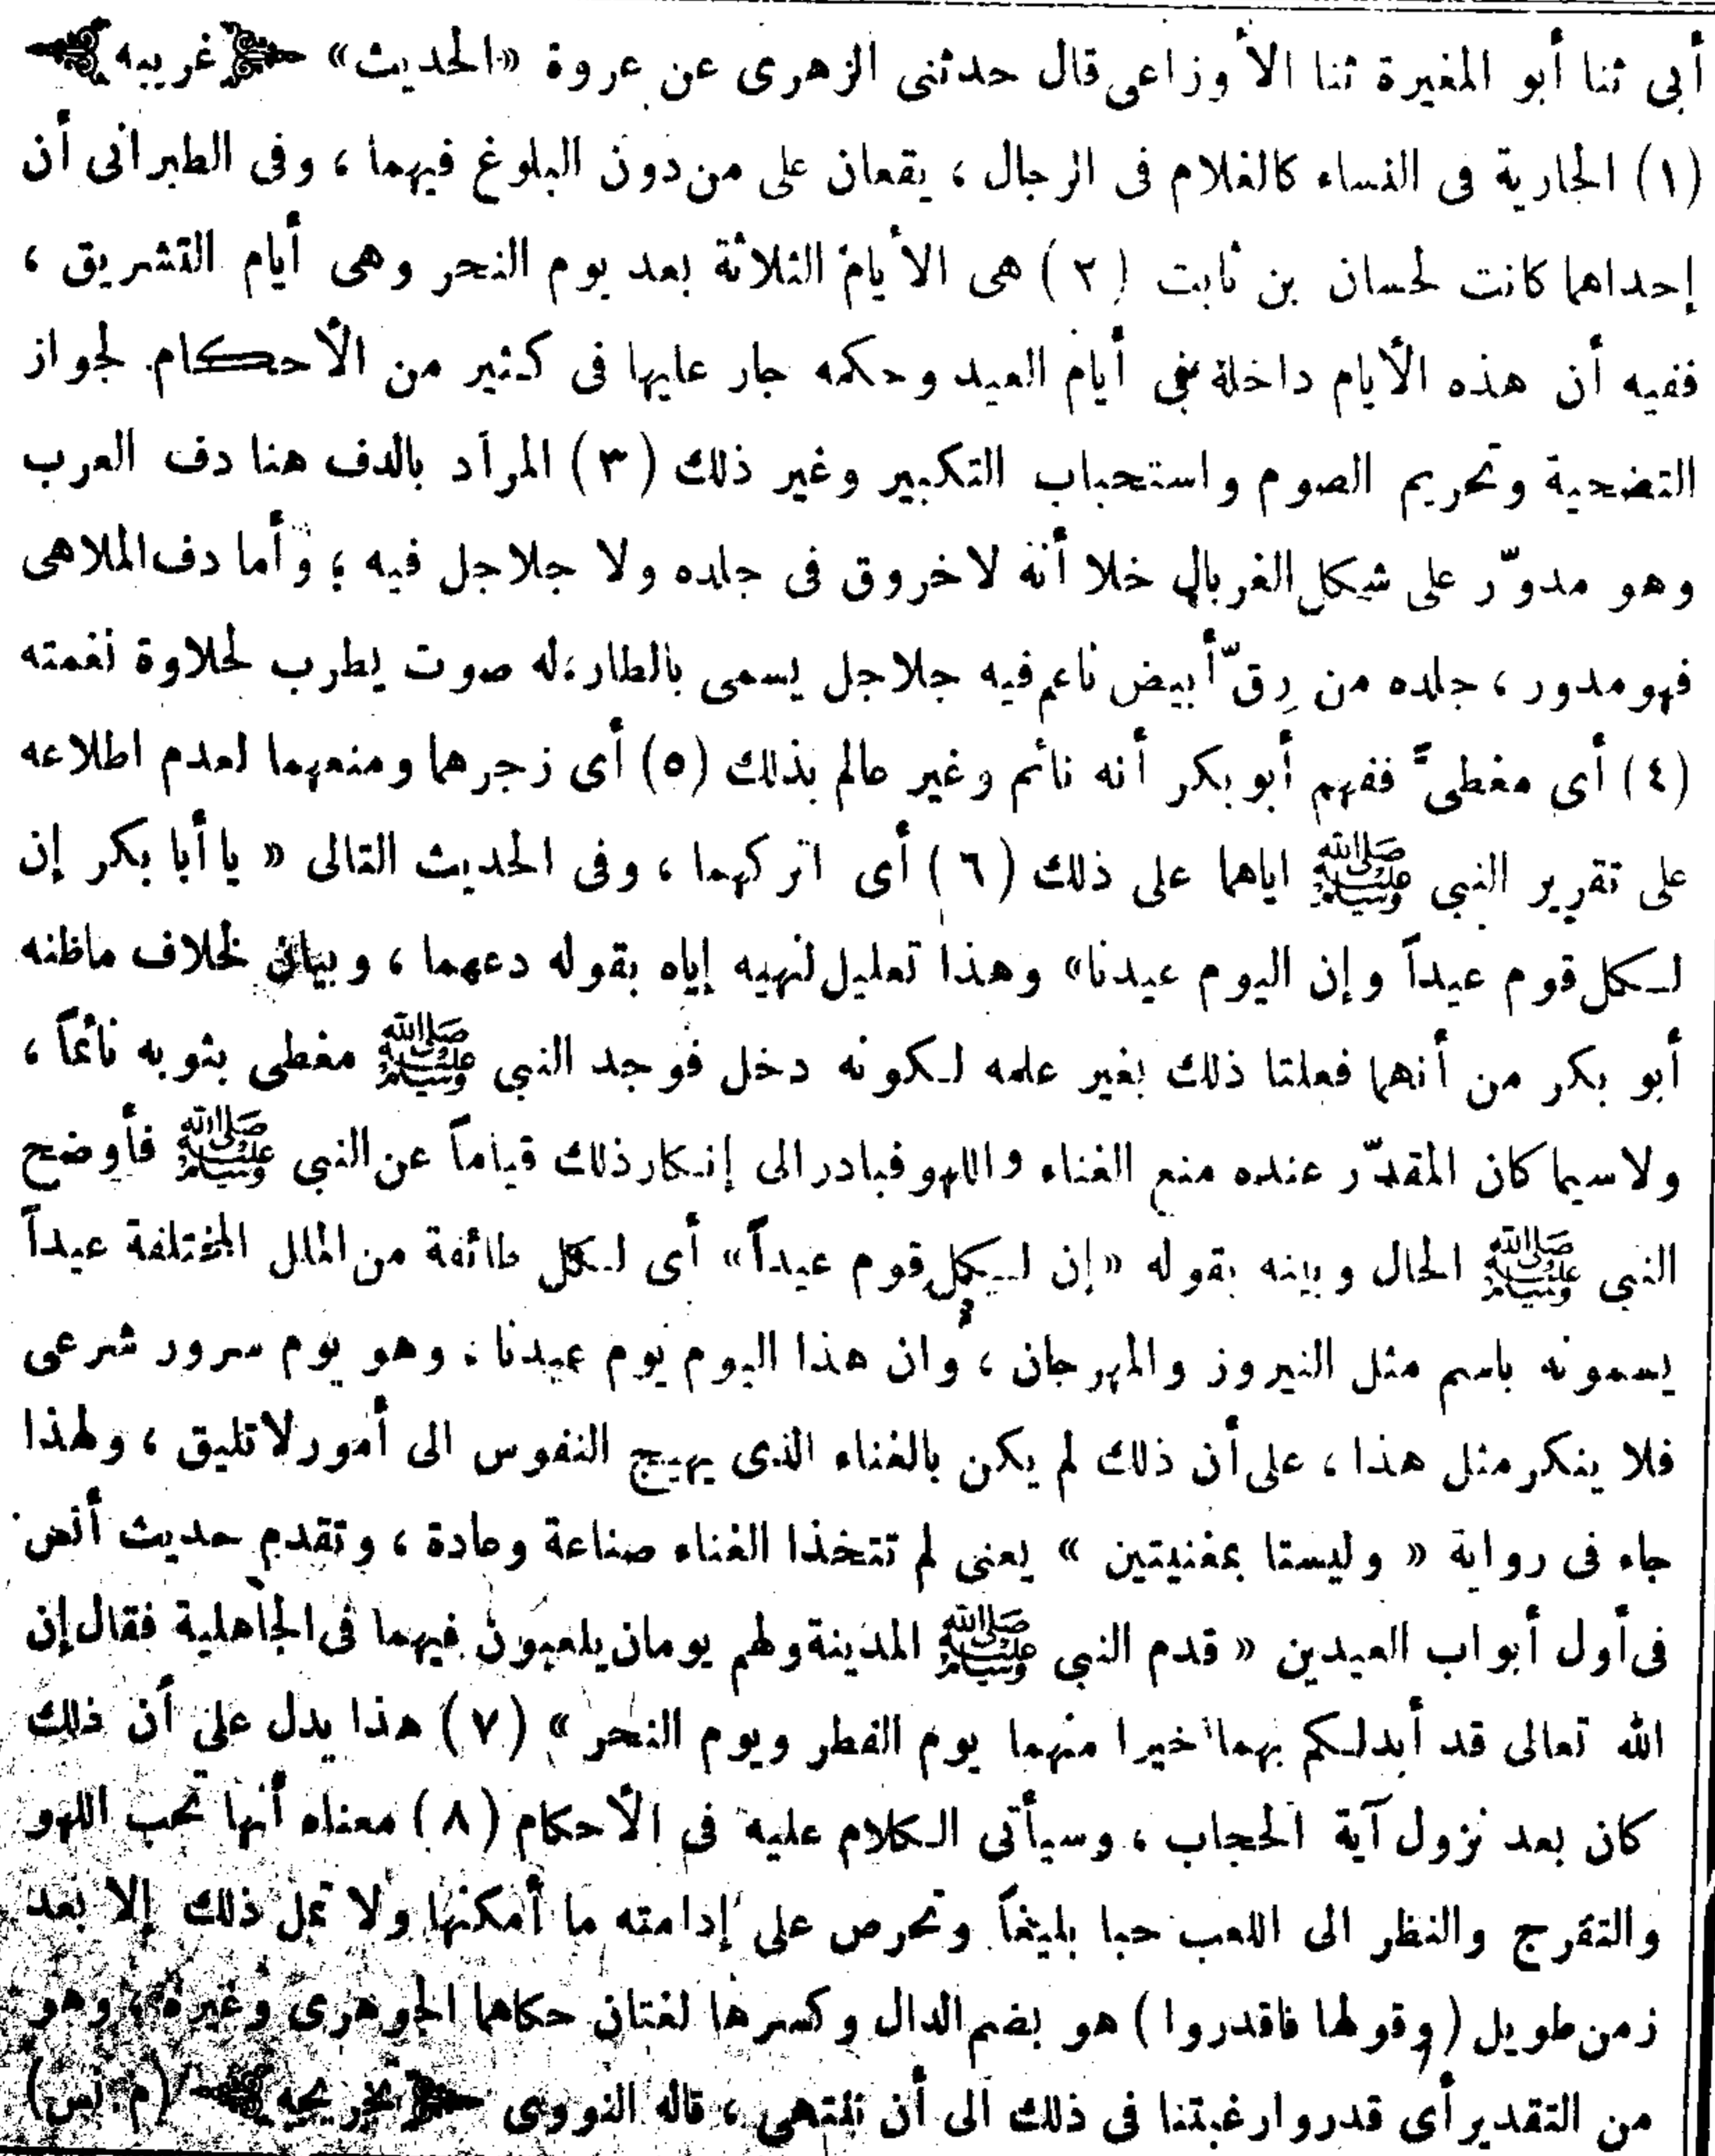 أبى ثنا أبو المغيرة ثنا الأوزاعى قال حدثنى الزهرى عن عروة «الحديث» ﴿غريبه﴾
(١) الجارية فى النساء كالغلام فى الرجال ، يقعان على من دون البلوغ فيهما ، وفى الطبرانى أن
إحداهما كانت لحسان بن ثابت (٢) هى الأيام الثلاثة بعد يوم النحر وهى أيام التشريق ،
ففيه أن هذه الأيام داخلة فى أيام العيد وحكمه جار عليها فى كثير من الأحكام لجواز
التضحية وتحريم الصوم واستحباب التكبير وغير ذلك (٣) المراد بالدف هنا دف العرب
وهو مدوّر على شكل الغربال خلا أنه لا خروق فى جلده ولا جلاجل فيه ؛ وأما دف الملاهى
فهو مدور ، جلده من رِقّ أبيض ناعم فيه جلاجل يسمى بالطار ، له صوت يطرب لحلاوة نغمته
(٤) أى مغطىً ففهم أبو بكر أنه نائم وغير عالم بذلك (٥) أى زجرهما ومنعهما لعدم اطلاعه
على تقرير النبى ﷺ اياهما على ذلك (٦) أى اتركهما ، وفى الحديث التالى « يا أبا بكر إن
لكل قوم عيداً وإن اليوم عيدنا» وهذا تعليل لنهيه إياه بقوله دعهما ، وبيان لخلاف ماظنه
أبو بكر من أنهما فعلتا ذلك بغير علمه لكونه دخل فوجد النبى ﷺ مغطى بثوبه نائماً ،
ولاسيما كان المقدّر عنده منع الغناء واللهو فبادر الى إنكار ذلك قياماً عن النبى ﷺ فأوضح
النبى ﷺ الحال وبينه بقوله «إن لكل قوم عيداً» أى لكل طائفة من الملل المختلفة عيداً
يسمونه باسم مثل النيروز والمهرجان ، وان هذا اليوم يوم عيدنا ، وهو يوم سرور شرعى
فلا ينكر مثل هذا ، على أن ذلك لم يكن بالغناء الذى يهيج النفوس الى أمور لاتليق ، ولهذا
جاء فى رواية « وليستا بمغنيتين » يعنى لم تتخذا الغناء صناعة وعادة ، وتقدم حديث أنس
فى أول أبواب العيدين « قدم النبى ﷺ المدينة ولهم يومان يلعبون فيهما فى الجاهلية فقال إن
الله تعالى قد أبدلكم بهما خيرا منهما يوم الفطر ويوم النحر » (٧) هذا يدل على أن ذلك
كان بعد نزول آية الحجاب ، وسيأتى الكلام عليه فى الأحكام (٨) معناه أنها تحب اللهو
والتفرج والنظر الى اللعب حبا بليغاً وتحرص على إدامته ما أمكنها ولا تمل ذلك إلا بعد
زمن طويل (وقولها فاقدروا) هو بضم الدال وكسرها لغتان حكاهما الجوهرى وغيره ، وهو
من التقدير أى قدروا رغبتنا فى ذلك الى أن تنتهى ، قاله النووى ﴿تخريجه﴾ (م . نس)